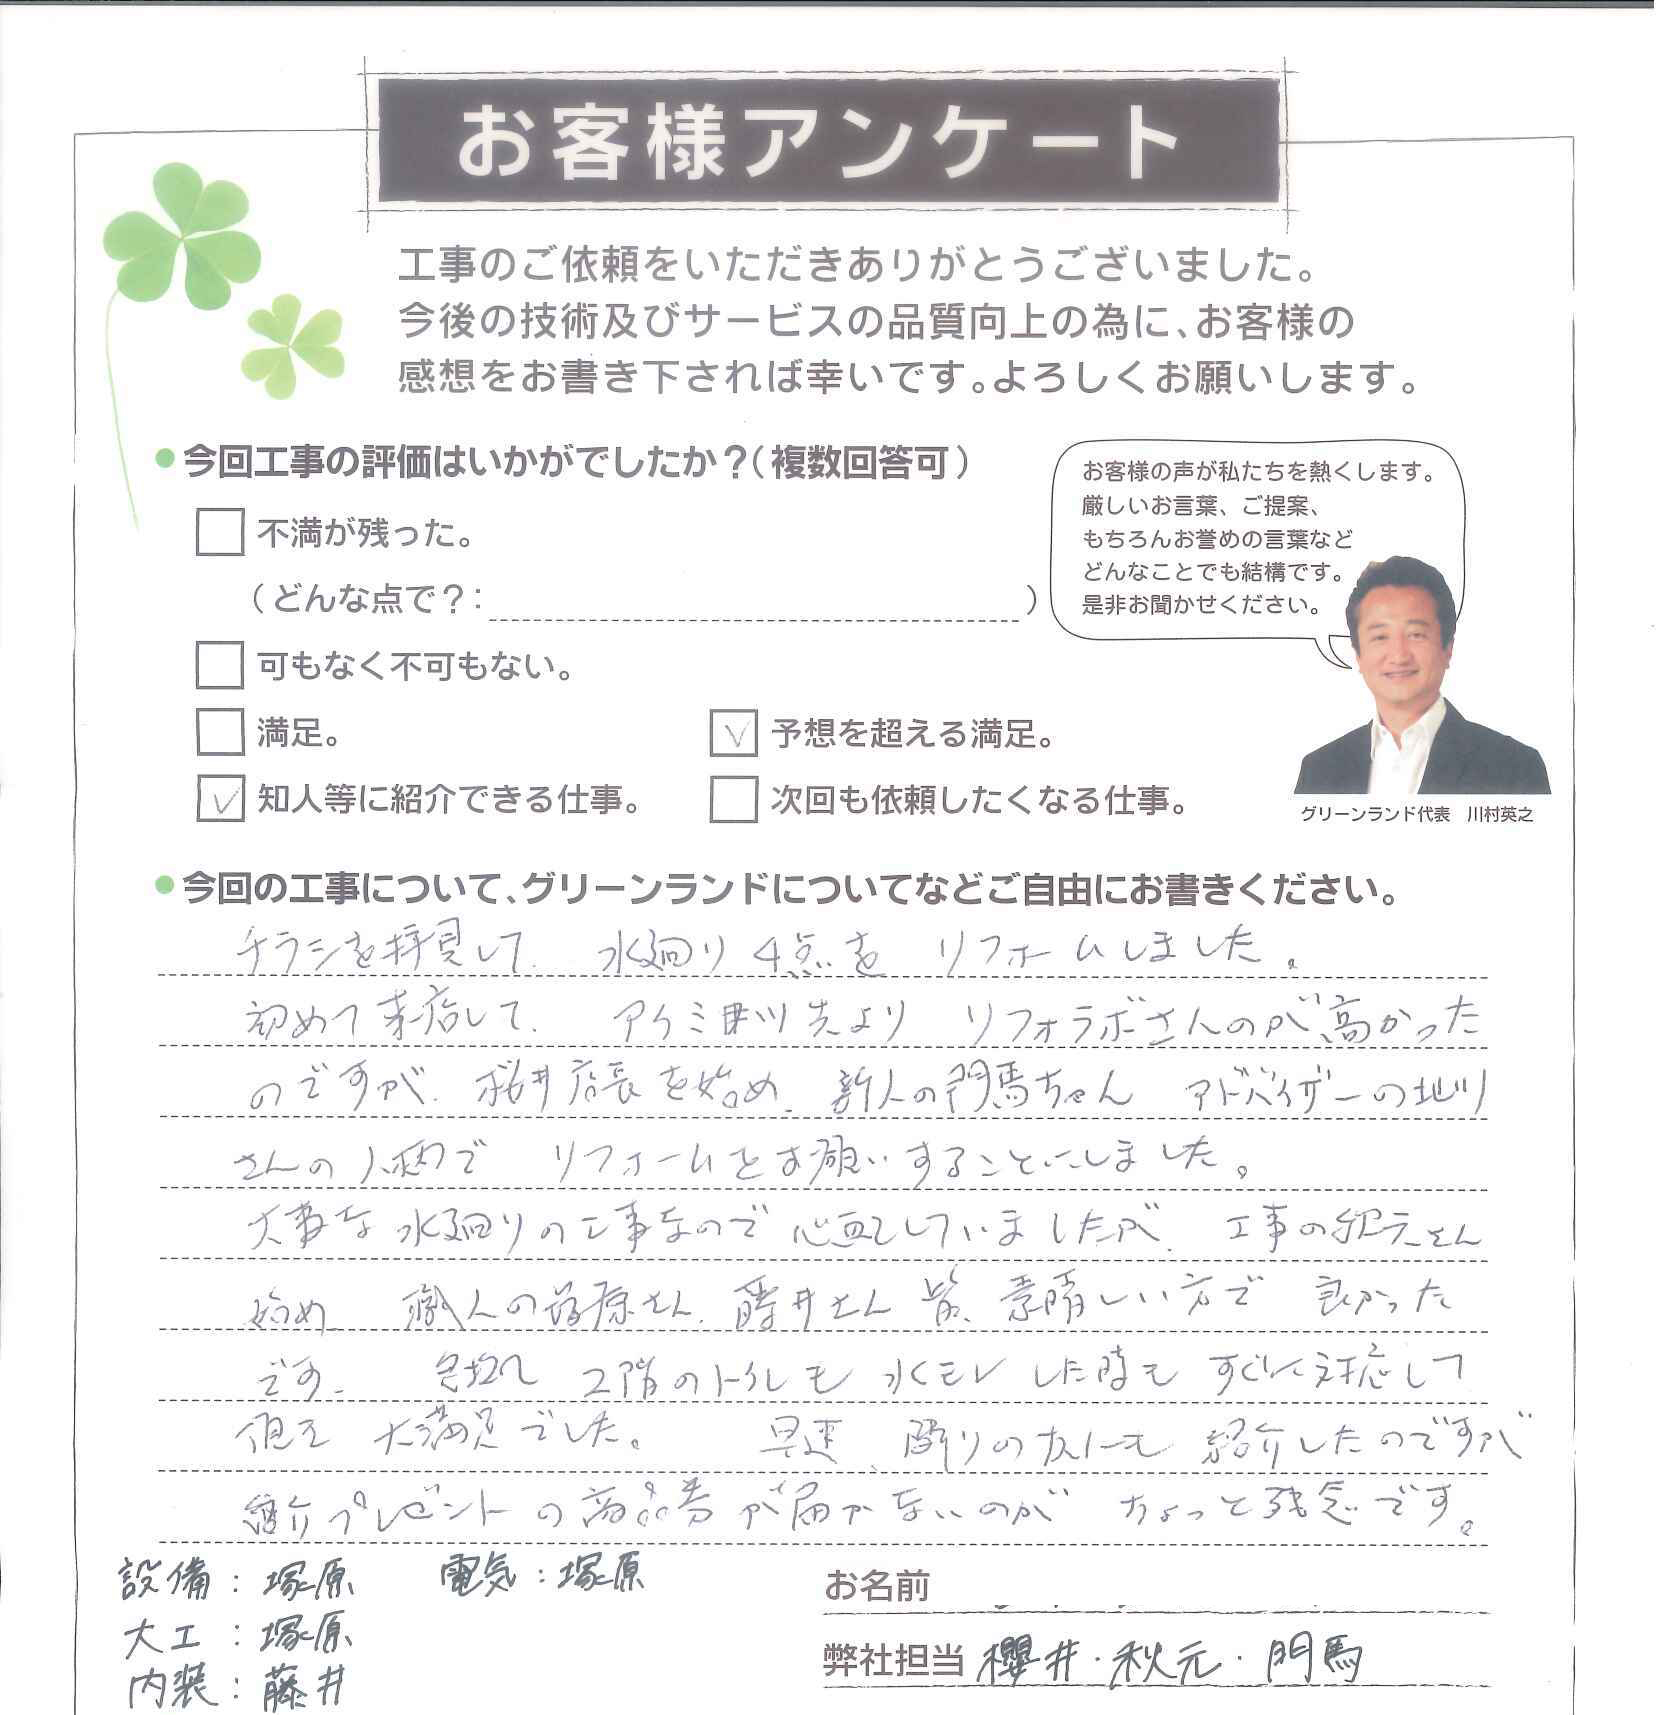 お客様アンケート
工事のご依頼をいただきありがとうございました。
今後の技術及びサービスの品質向上の為に、お客様の
感想をお書き下されば幸いです。よろしくお願いします。
●今回工事の評価はいかがでしたか？(複数回答可)
不満が残った。
(どんな点で？: )
可もなく不可もない。
満足。
予想を超える満足。
知人等に紹介できる仕事。
次回も依頼したくなる仕事。
お客様の声が私たちを熱くします。
厳しいお言葉、ご提案、
もちろんお誉めの言葉など
どんなことでも結構です。
是非お聞かせください。
グリーンランド代表 川村英之
●今回の工事について、グリーンランドについてなどご自由にお書きください。
チラシを拝見して、水廻り4点を リフォームしました。
初めて来店して、 より リフォラボさんのが高かった
のですが、桜井店長を始め、新人の門馬ちゃん アドバイザーの
さんの人柄で リフォームをお願いすることにしました。
大事な水廻りの工事なので心配していましたが、工事の秋元さん
始め 職人の塚原さん、藤井さん 皆、素晴しい方で 良かった
です。 2階のトイレも 水モレした時も すぐに対応して
大満足でした。 早速、隣りの友人にも 紹介したのですが
紹介プレゼントの商品券が届かないのが ちょっと残念です。
設備：塚原 電気：塚原
大工：塚原
内装：藤井
お名前
弊社担当 櫻井・秋元・門馬